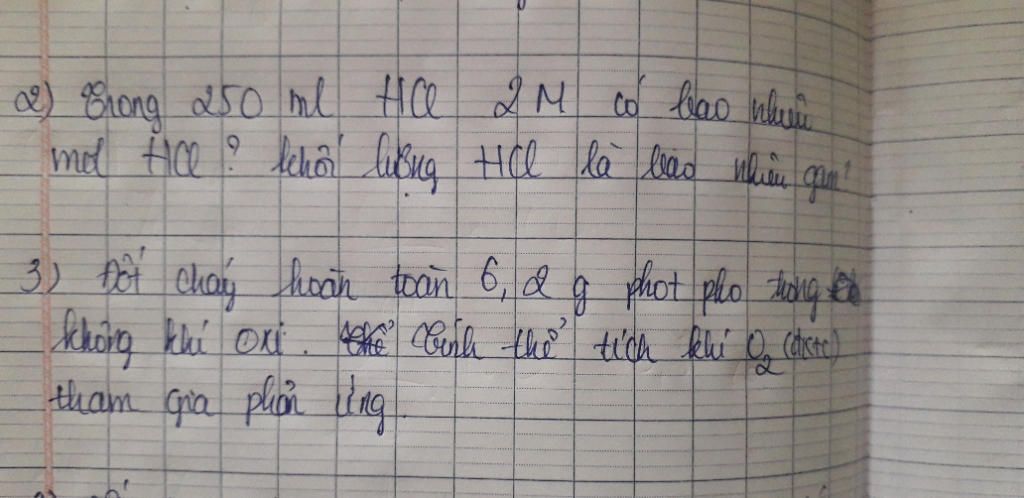 2) Trong 250 ml HCl 2M có bao nhiêu
mol HCl? khối lượng HCl là bao nhiêu gam?
3) Đốt cháy hoàn toàn 6,2 g phot pho trong
không khí oxi. Tính thể tích khí O2 (đktc)
tham gia phản ứng.